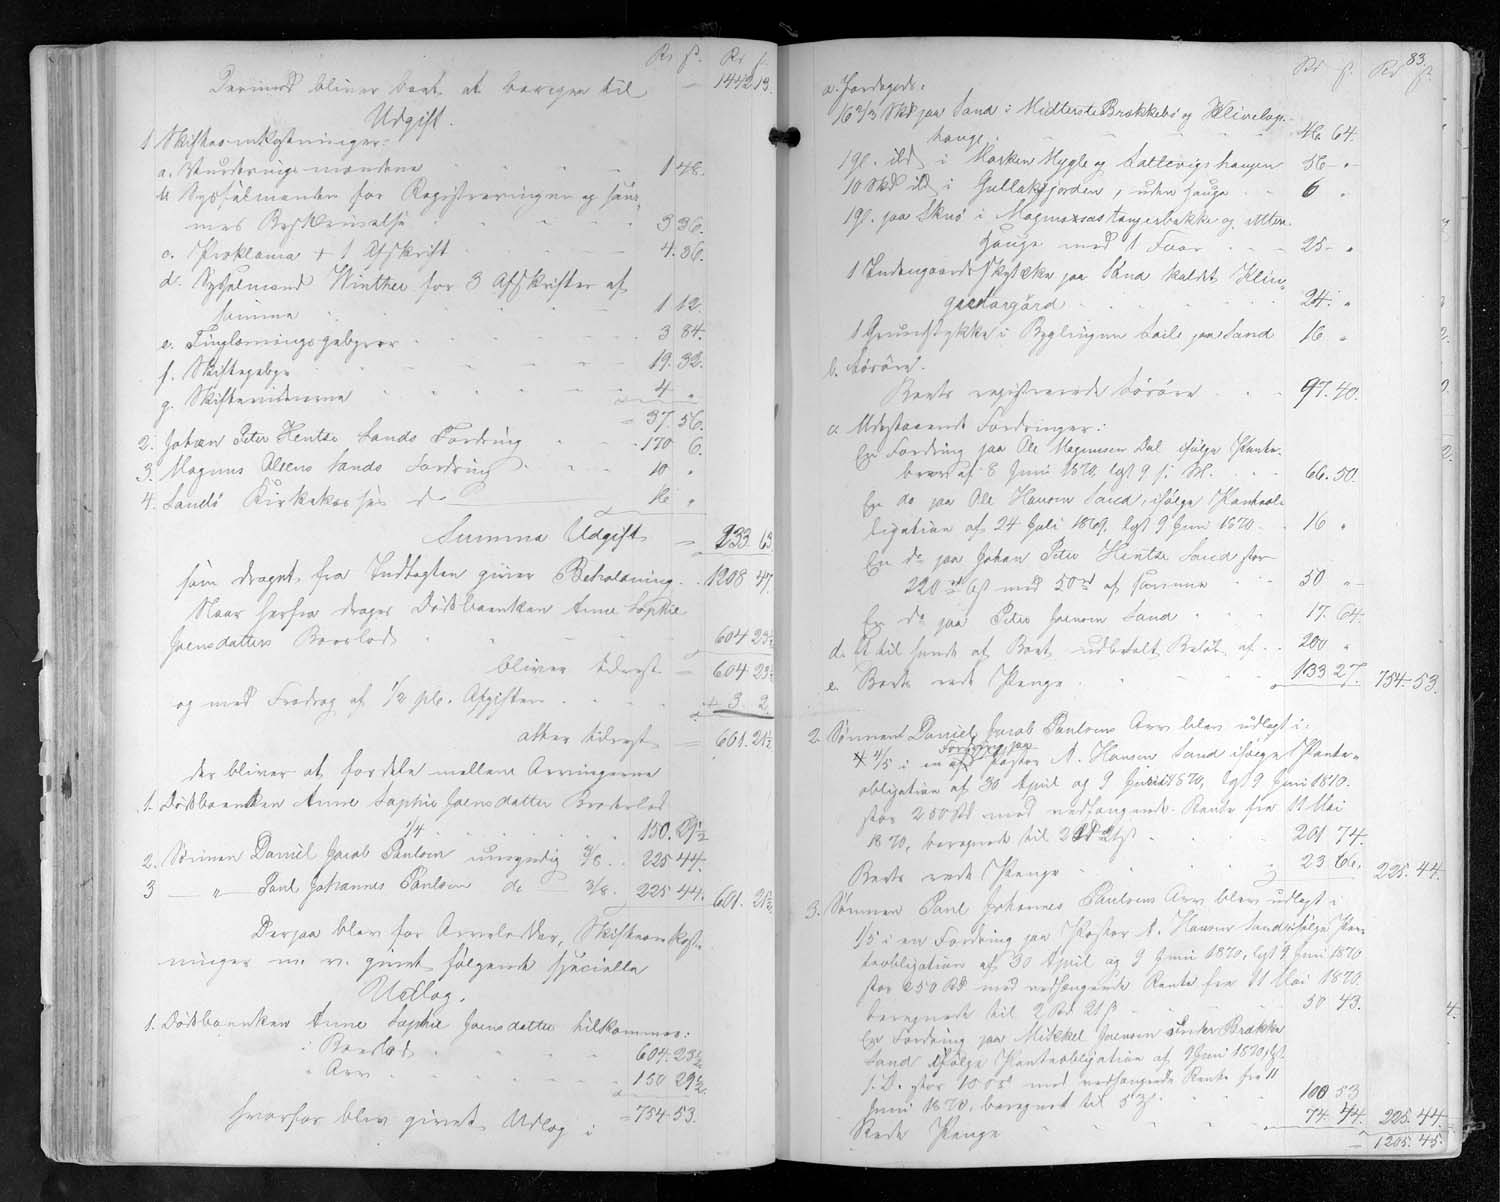 Rd ß. Rd ß.
Derimod bliver Boet at beregne til — 1442 13.
Udgift.
1 Skifteomkostninger:
a. Vurderingsmændene 1 48.
b. Sysselmanden for Registreringen og sam-
mes Beskrivelse 3 36.
c. Proklama + 1 Afskrift 4. 36.
d. Sysselmand Winther for 3 Afskrifter af
samme 1 12.
e. Tinglæsningsgebyrer 3 84.
f. Skiftegebyr 19. 32.
g. Skiftevidnerne 4 "
= 37. 56.
2. Johan Peter Hentze Sands Fordring 170 6.
3. Magnus Olsens Sands Fordring 10 "
4. Sandø Kirkekasses do 16 "
Summa Udgift = 233 63
som draget fra Indtægten giver Beholdning 1208 47.
Naar herfra drages Dødsboenken Anne Sophie
Joensdatters Boeslod 604 23½
bliver tilrest = 604 23½
og med Fradrag af ½ pCt. Afgiften ÷ 3. 2.
atter tilrest = 601. 21½
der bliver at fordele mellem Arvingerne
1. Dødsboenken Anne Sophie Joensdatter Broderlod
1/4 150. 29½
2. Sønnen Daniel Jacob Paulsen umyndig 3/8 225 44.
3 — " — Paul Johannes Paulsen do — 3/8. 225 44. 601. 21½
Derpaa blev for Arvelodder, Skifteomkost-
ninger m. v. givet følgende specielle
Udlæg.
1. Dødsboenken Anne Sophie Joensdatter tilkommer:
i Boeslod 604. 23½
i Arv 150 29½
hvorfor blev givet Udlæg i = 754 53.
83.
Rd ß. Rd ß.
a. Jordegods:
16 2/3 Skd paa Sand i Midterste Brekkebø og
hauge 46. 64.
1 gl. ibd i Marken Mygle og haugen 56 "
10 Skd ibd i Gullakjorden, uden Hauge 6 "
1 gl. paa Skuø i og
Hauge med 1 Faar 25 "
1 Indengaards Stykke paa Sand kaldet
24. "
1 Grundstykke i Bygningen paa Sand 16 "
b. Løsøre:
Boets registrerede Løsøre 97. 40.
c. Udestaaende Fordringer:
En Fordring paa Ole Magnussen Dal ifølge Pante-
brev af 8 Juni 1870, lyst 9 s. M. 66. 50.
En do paa Ole Hansen Sand, ifølge Panteob-
ligation af 24 Juli 1869, lyst 9 Juni 1870 16 "
En do paa Johan Peter Hentze Sand stor
220 rd 6 ß med 50 rd af samme 50 "
En do paa Peter Joensen Sand 17. 64.
d. Et til hende af Boet udbetalt Beløb af 200 "
e. Boets rede Penge 133 27. 754. 53.
2. Sønnen Daniel Jacob Paulsens Arv blev udlagt i:
4/5 i en Fordring paa Pastor A. Hansen Sand ifølge Pante-
obligation af 30 April og 9 Juni 1870, lyst 9 Juni 1870.
stor 250 Rd med vedhængende Rente fra 11 Mai
1870, beregnet til 2 Rd 21 ß 201 74.
Boets rede Penge 23 66. 225. 44.
3. Sønnen Paul Johannes Paulsens Arv blev udlagt i
1/5 i en Fordring paa Pastor A. Hansen Sand ifølge Pan-
teobligation af 30 April og 9 Juni 1870, lyst 9 Juni 1870
stor 250 Rd med vedhængende Rente fra 11 Mai 1870.
beregnet til 2 Rd 21 ß 50 43.
En Fordring paa Mikkel Joensen under Brekke
Sand ifølge Panteobligation af 9 Juni 1870, lyst
s. D. stor 100 rd med vedhængende Rente fra 11
Juni 1870, beregnet til 53 ß 100 53
Rede Penge 74. 44. 225. 44.
= 1205. 45.